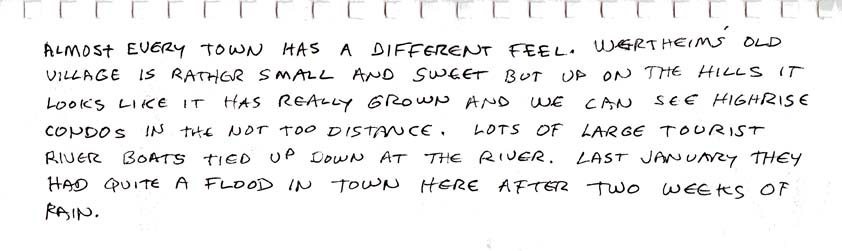 ALMOST EVERY TOWN HAS A DIFFERENT FEEL. WERTHEIMS' OLD
VILLAGE IS RATHER SMALL AND SWEET BUT UP ON THE HILLS IT
LOOKS LIKE IT HAS REALLY GROWN AND WE CAN SEE HIGHRISE
CONDOS IN THE NOT TOO DISTANCE. LOTS OF LARGE TOURIST
RIVER BOATS TIED UP DOWN AT THE RIVER. LAST JANUARY THEY
HAD QUITE A FLOOD IN TOWN HERE AFTER TWO WEEKS OF
RAIN.